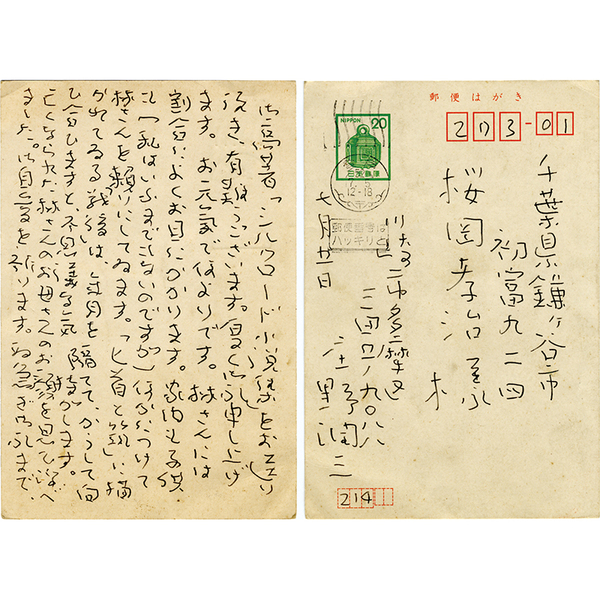 御高著「シルクロード小説集」をお送り
頂き、有難うございます。厚く御礼申し上げ
ます。お元気で何よりです。林さんには
割合によくお目にかかります。家内も子供
(私はいふまでもないのですが)何かにつけて
林さんを頼りにしてゐます。「匕首と筑」に描
かれてゐる戦後は、年月を隔てて、かうして向
ひ合ひますと、不思議な気持がします。
亡くなられた林さんのお母さんのお顔も見浮べ
ました。御自愛を祈ります。取急ぎ御礼まで。
郵便はがき
273-01
NIPPON 20
日本郵便
12-18
郵便番号は
ハッキリと
千葉県鎌ヶ谷市
初富九二四
桜岡孝治様
川崎市多摩区
三田
庄野潤三
七月廿一日
214